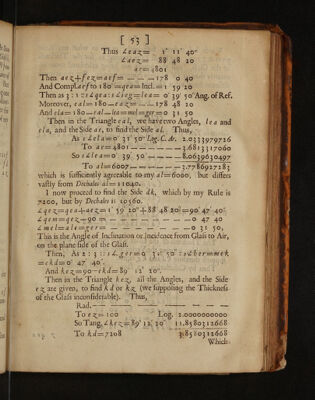 [ 53 ]
Thus ∠eaz= 1° 11′ 40″
∠aez= 88 48 20
ae=4801
Then aez+fez=aef= — — — 178 0 40
And Compl.aef to 180=qea=Incl.=1 59 20
Then as 3 : 2::s∠qea:s∠leg=lea= 0 39 50 Ang. of Ref.
Moreover, eal=180—eaz= — — 178 48 20
And ela=180—eal—lea=mel=ger=0 31 50
Then in the Triangle eal, we have two Angles, lea and
ela, and the Side ae, to find the Side al. Thus,
As s∠ela=0° 31′ 50″ Log. C. Ar. 2.0333979716
To ae=4801 — — — — 3.6813317060
So s∠lea=0 39 50 — — — 8.0639630497
To al=6007 — — — — 3.7786927283
which is sufficiently agreeable to my al=6000, but differs
vastly from Dechales al=11040.
I now proceed to find the Side dk, which by my Rule is
7200, but by Dechales is 10560.
∠qez=qea+aez=1° 59′ 20″+88 48 20=90° 47′ 40″
∠qem=qez—90 — — — — — 0 47 40
∠mel=ale=ger= — — — — — 0 31 50,
This is the Angle of Inclination or Incidence from Glass to Air,
on the plane side of the Glass.
Then, As 2 : 3 :: s∠ger=0 31′ 50″ : s∠her=mek
=ekd=0° 47′ 40″.
And kez=90—ekd=89° 12′ 20″.
Then in the Triangle kez, all the Angles, and the Side
ez are given, to find kd or kz (we supposing the Thickness
of the Glass inconsiderable). Thus,
Rad. — — — — — — —
To ez=100 Log. 2.0000000000
So Tang. ∠kez=89° 12′ 20″ 11.8580312668
To kd=7208 3.8580312668
Which